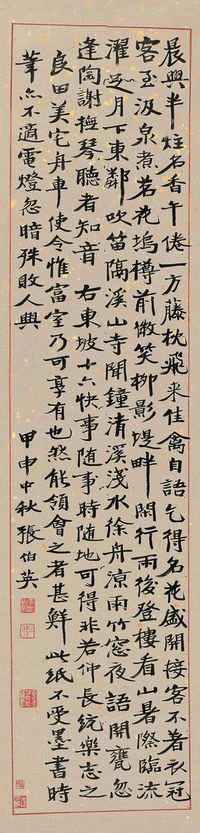 晨興半炷名香午倦一方藤枕飛来佳禽自語乞得名花盛開接客不著衣冠
客至汲泉煮茗花塢樽前微笑柳影堤畔閒行雨後登樓看山暑際臨流
濯足月下東鄰吹笛隔溪山寺聞鐘清溪淺水徐舟涼雨竹窓夜語開甕忽
逢陶謝撫琴聽者知音 右東坡十六快事随事時随地可得非若仲長統樂志之
良田美宅舟車使令惟富室乃可享有也然能領會之者甚鮮 此紙不受墨書時
筆亦不適電燈忽暗殊敗人興
甲申中秋張伯英